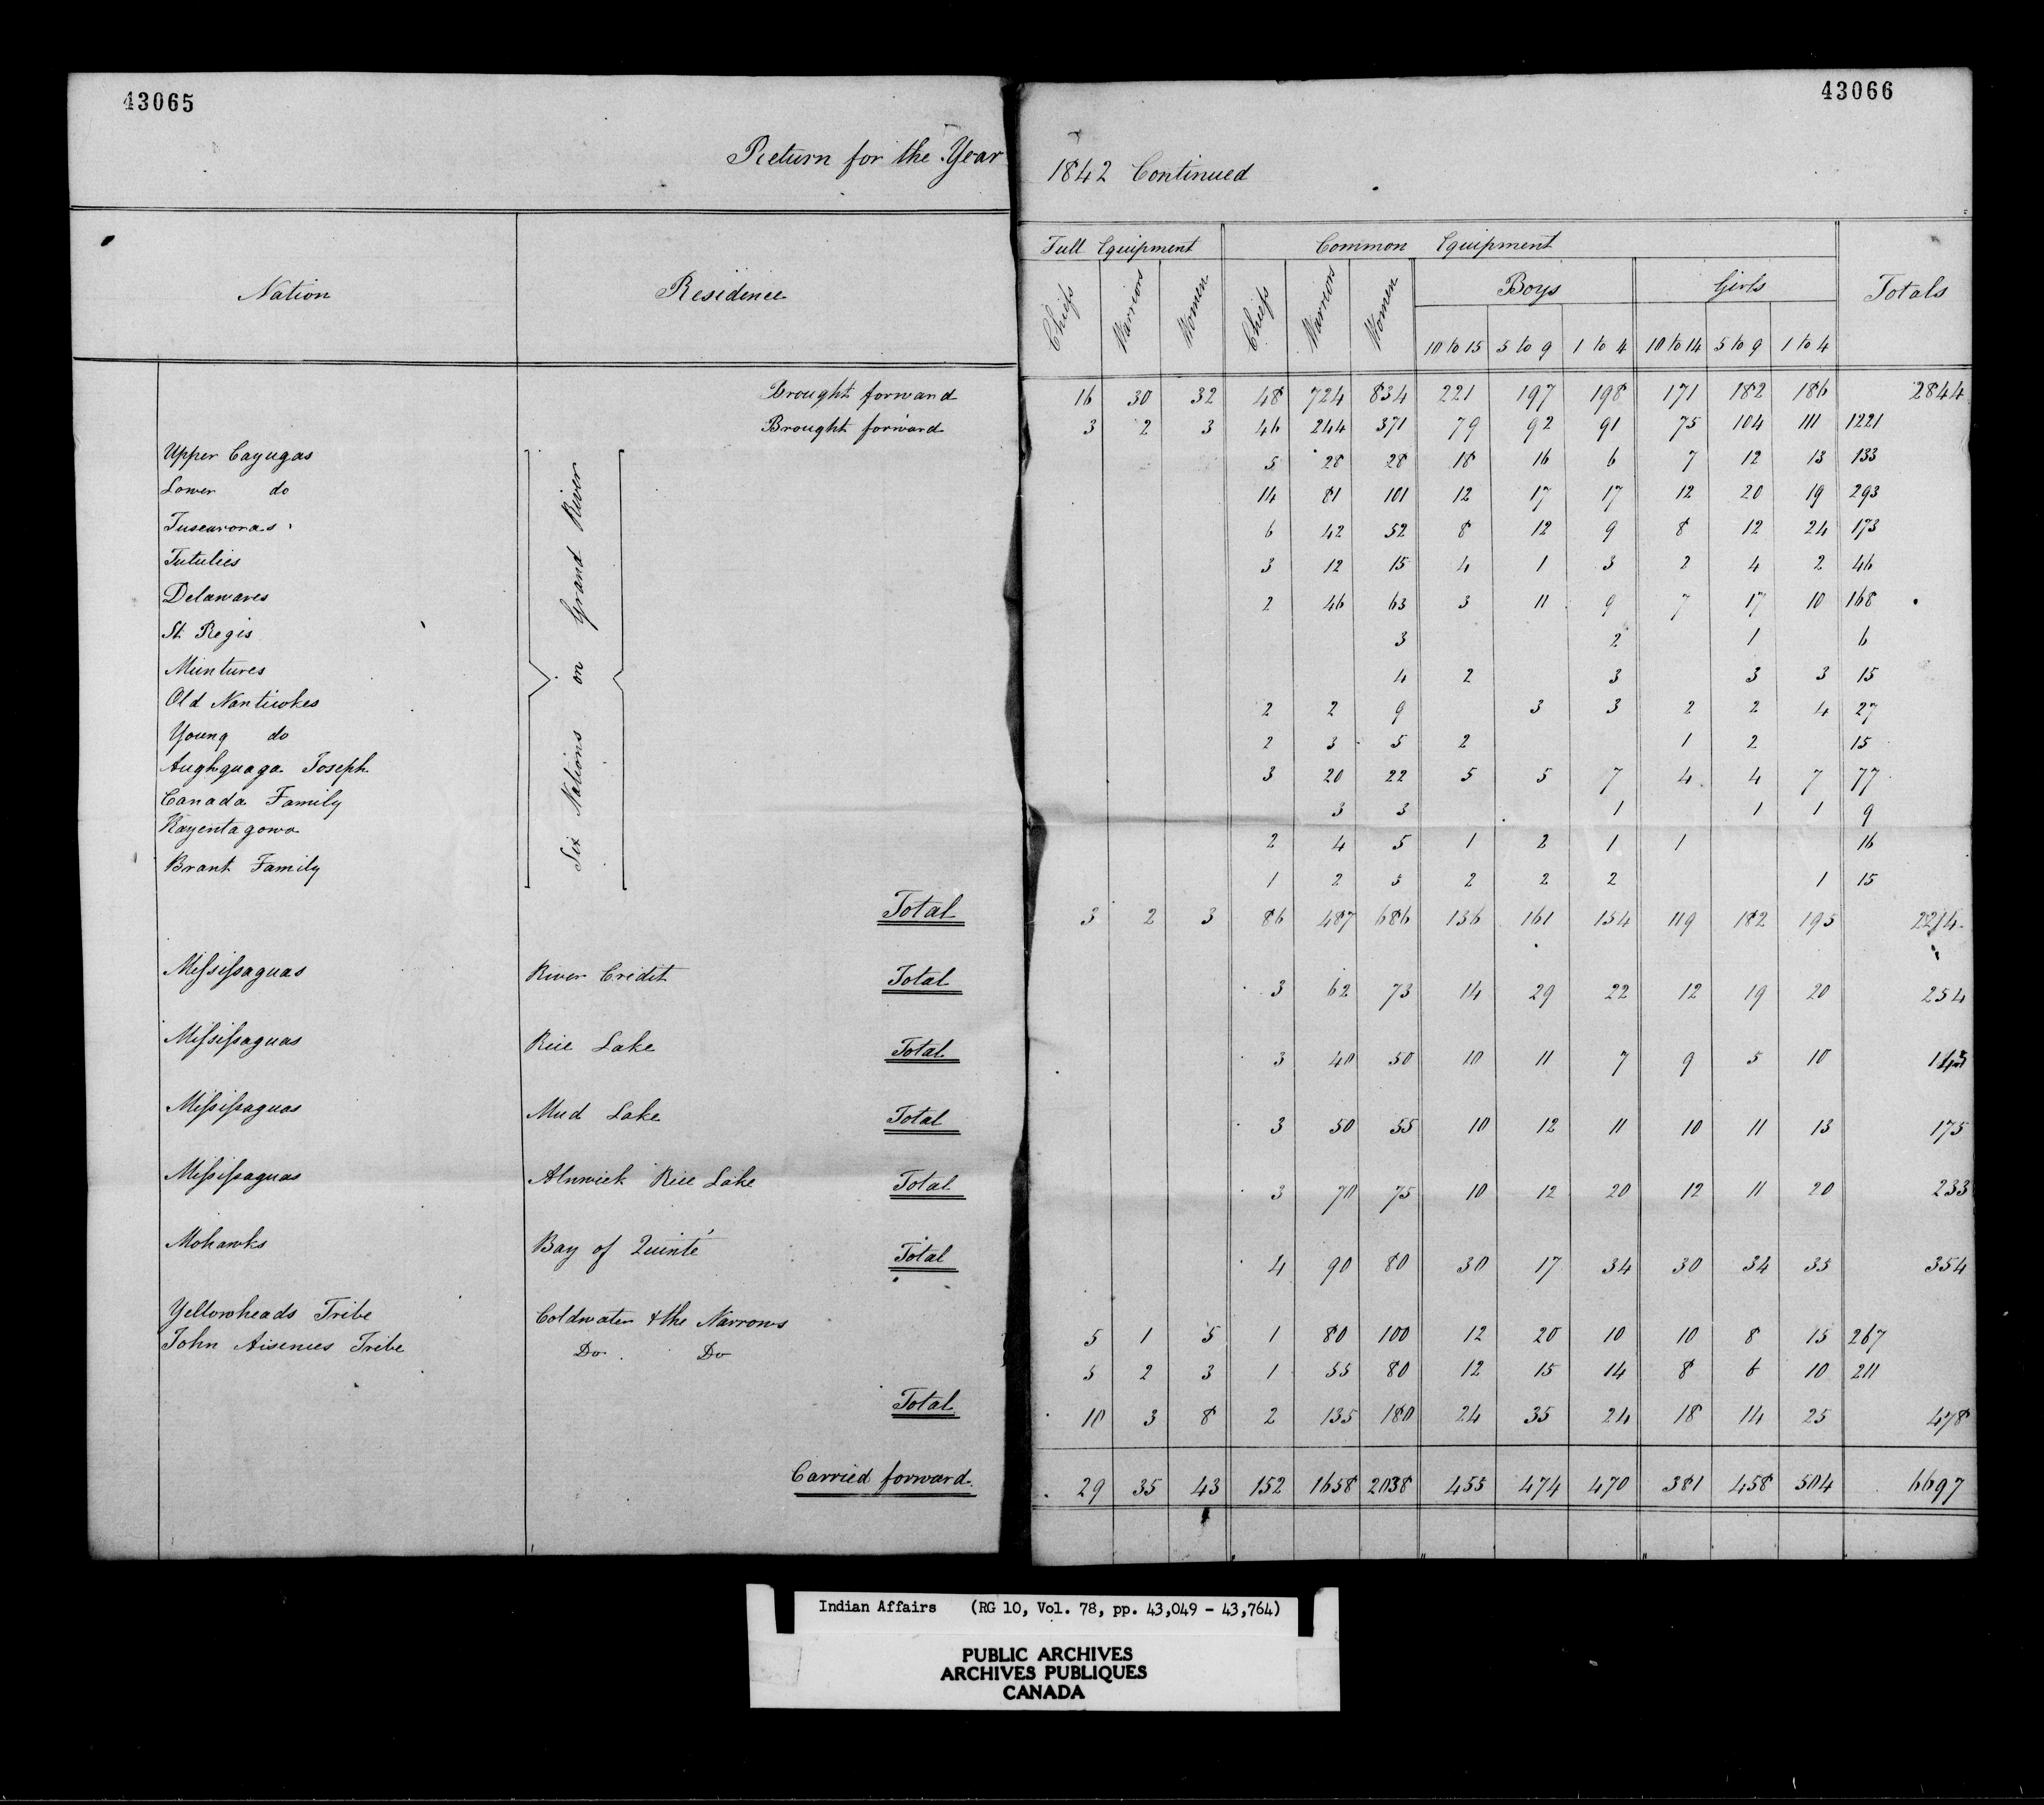 43065
43066
Return for the Year 1842 Continued
Nation Residence Full Equipment Common Equipment Totals
Boys Girls
Chiefs Warriors Women Chiefs Warriors Women 10 to 15 5 to 9 1 to 4 10 to 14 5 to 9 1 to 4
Brought forward 16 30 32 48 724 834 221 197 198 171 182 186 2844
Brought forward 3 2 3 46 244 371 79 92 91 75 104 111 1221
Six Nations on Grand River
Upper Cayugas 5 28 28 18 16 6 7 12 13 133
Lower do 14 81 101 12 17 17 12 20 19 293
Tuscaroras 6 42 52 8 12 9 8 12 24 173
Tutulies 3 12 15 4 1 3 2 4 2 46
Delawares 2 46 63 3 11 9 7 17 10 168
St. Regis 3 2 1 6
Muntures 4 2 3 3 3 15
Old Nanticokes 2 2 9 3 3 2 2 4 27
Young do 2 3 5 2 1 2 15
Aughguaga Joseph 3 20 22 5 5 7 4 4 7 77
Canada Family 3 3 1 1 1 9
Kayentagowa 2 4 5 1 2 1 1 16
Brant Family 1 2 5 2 2 2 1 15
Total 3 2 3 86 487 686 136 161 154 119 182 195 2214
Missisaguas River Credit Total 3 62 73 14 29 22 12 19 20 254
Missisaguas Rice Lake Total 3 40 50 10 11 7 9 5 10 145
Missisaguas Mud Lake Total 3 50 55 10 12 11 10 11 13 175
Missisaguas Alnwick Rice Lake Total 3 70 75 10 12 20 12 11 20 233
Mohawks Bay of Quinté Total 4 90 80 30 17 34 30 34 35 354
Yellowheads Tribe Coldwater & the Narrows 5 1 5 1 80 100 12 20 10 10 8 15 267
John Aisences Tribe Do Do 5 2 3 1 55 80 12 15 14 8 6 10 211
Total 10 3 8 2 135 180 24 35 24 18 14 25 478
Carried forward 29 35 43 152 1658 2038 455 474 470 381 458 504 6697
Indian Affairs (RG 10, Vol. 78, pp. 43,049 - 43,764)
PUBLIC ARCHIVES
ARCHIVES PUBLIQUES
CANADA